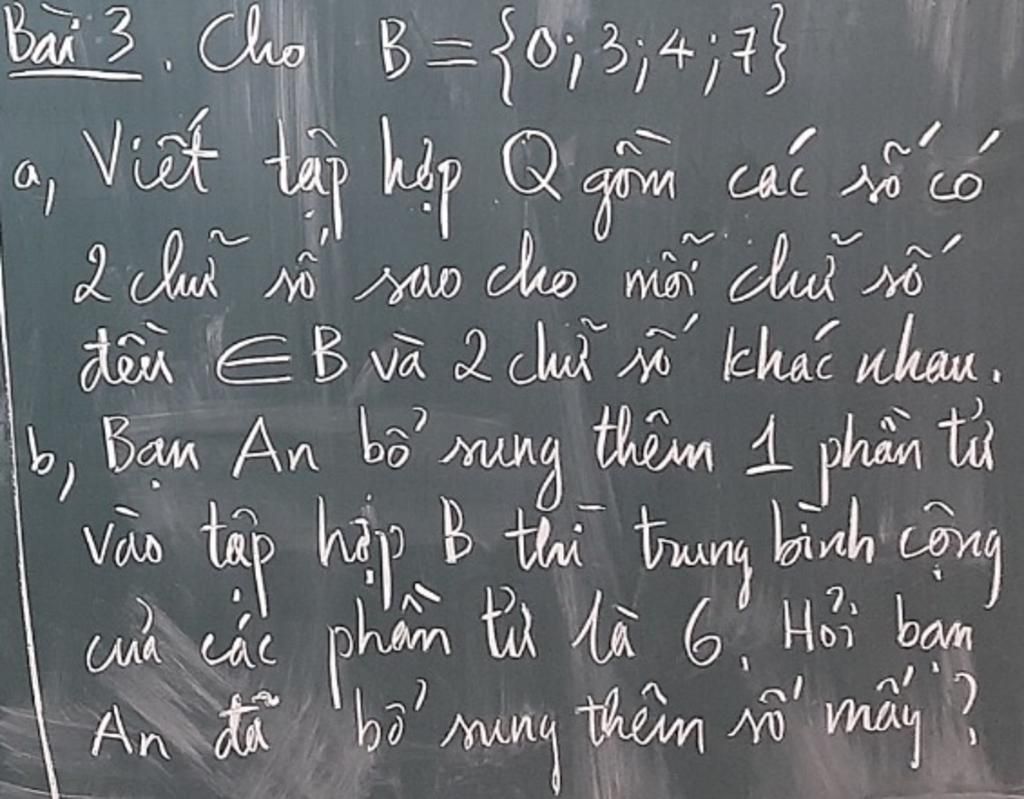 Bài 3. Cho B = {0; 3; 4; 7}
a, Viết tập hợp Q gồm các số có
2 chữ số sao cho mỗi chữ số
đều ∈ B và 2 chữ số khác nhau.
b, Bạn An bổ sung thêm 1 phần tử
vào tập hợp B thì trung bình cộng
của các phần tử là 6. Hỏi bạn
An đã bổ sung thêm số mấy?